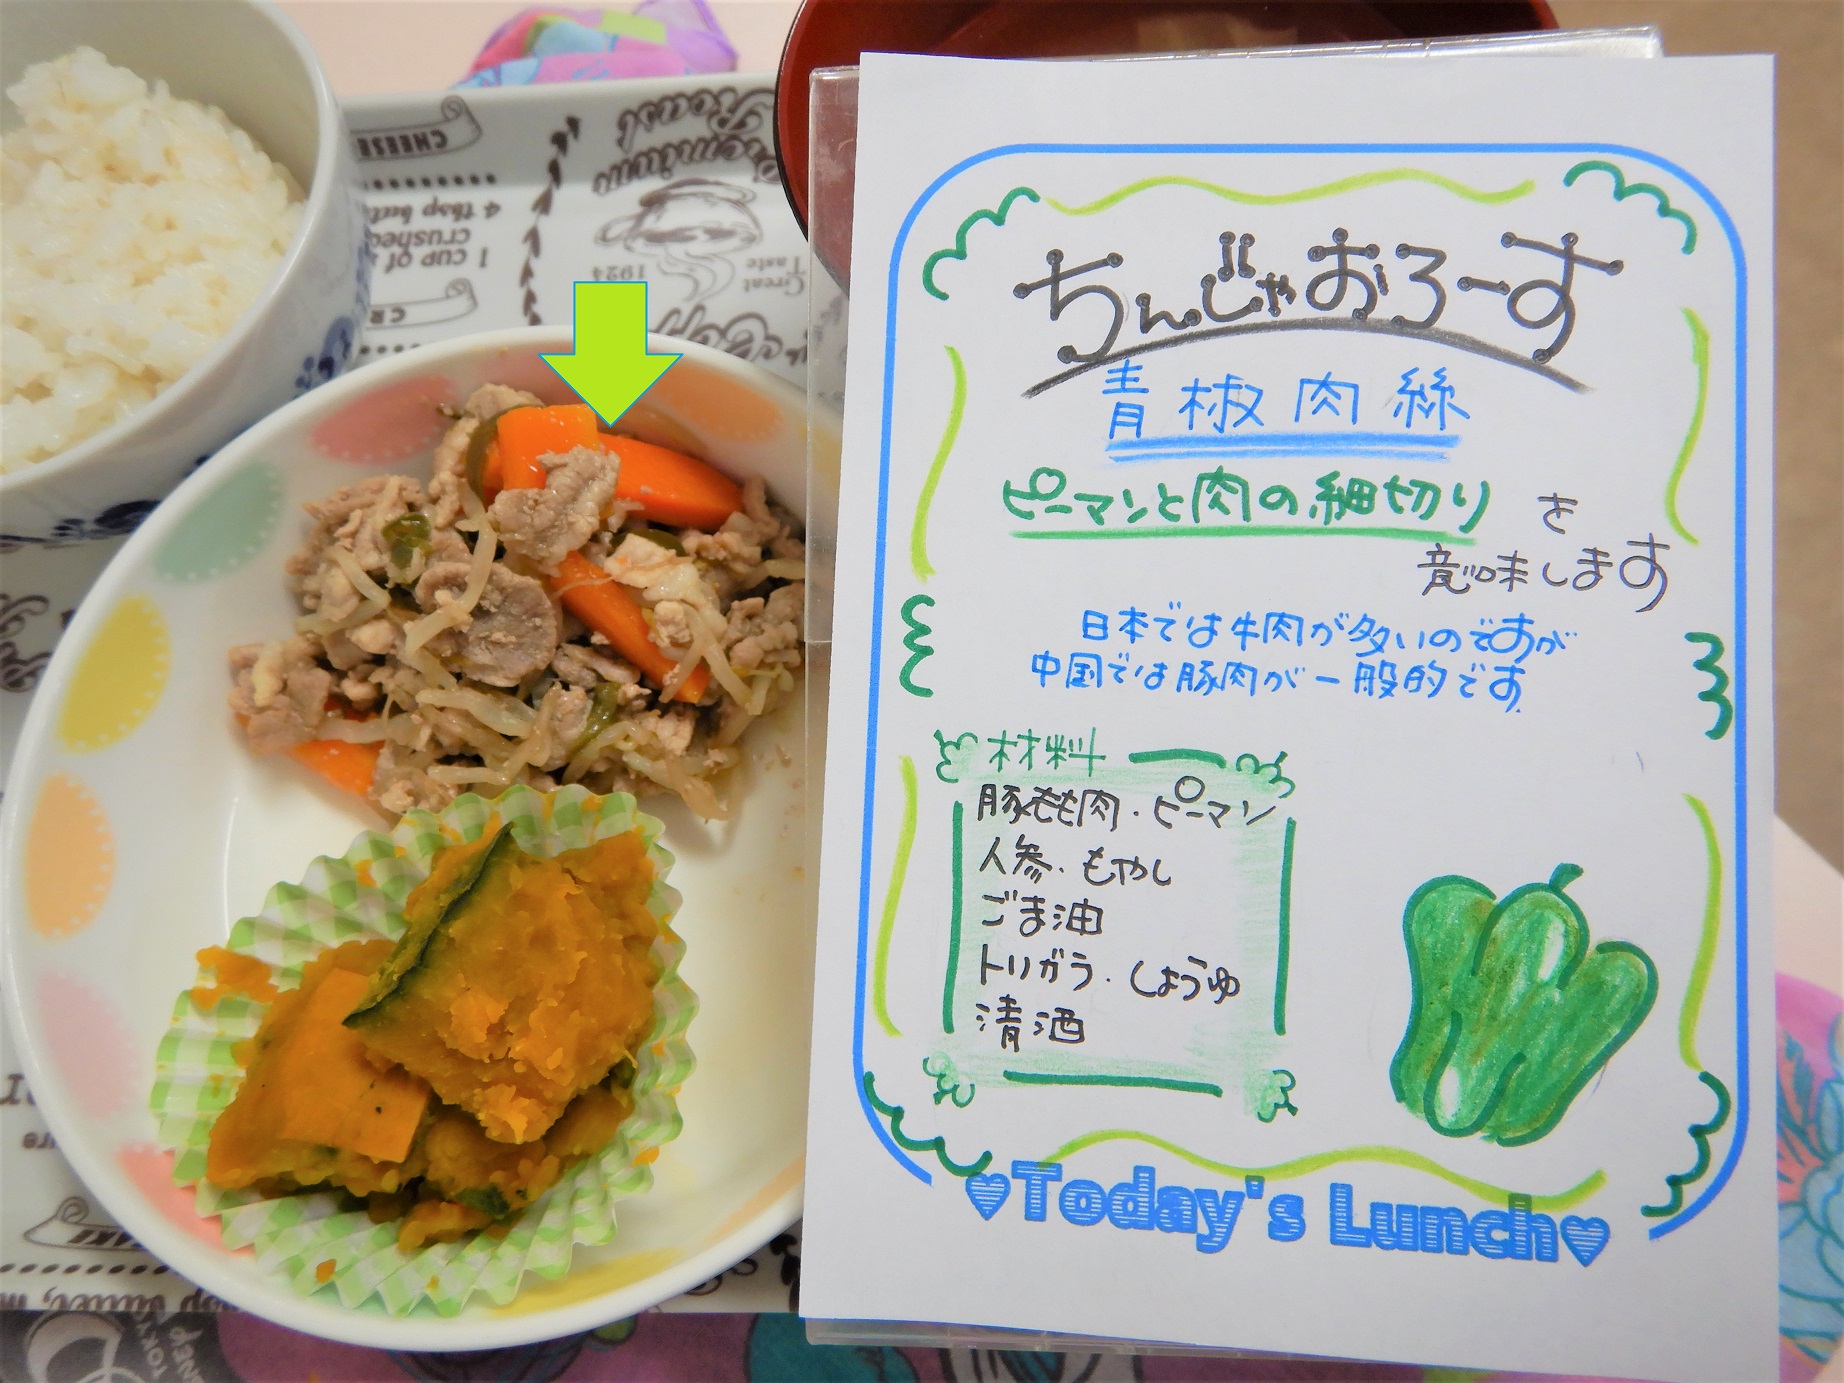 ちんじゃおろーす
青椒肉絲
ピーマンと肉の細切り を
意味します
日本では牛肉が多いのですが
中国では豚肉が一般的です
材料
豚もも肉・ピーマン
人参・もやし
ごま油
トリガラ・しょうゆ
清酒
♥Today's Lunch♥
CHEESE
4 tbsp
crushed
1 CUP OF
Premium
Roast
1924
Great
Taste